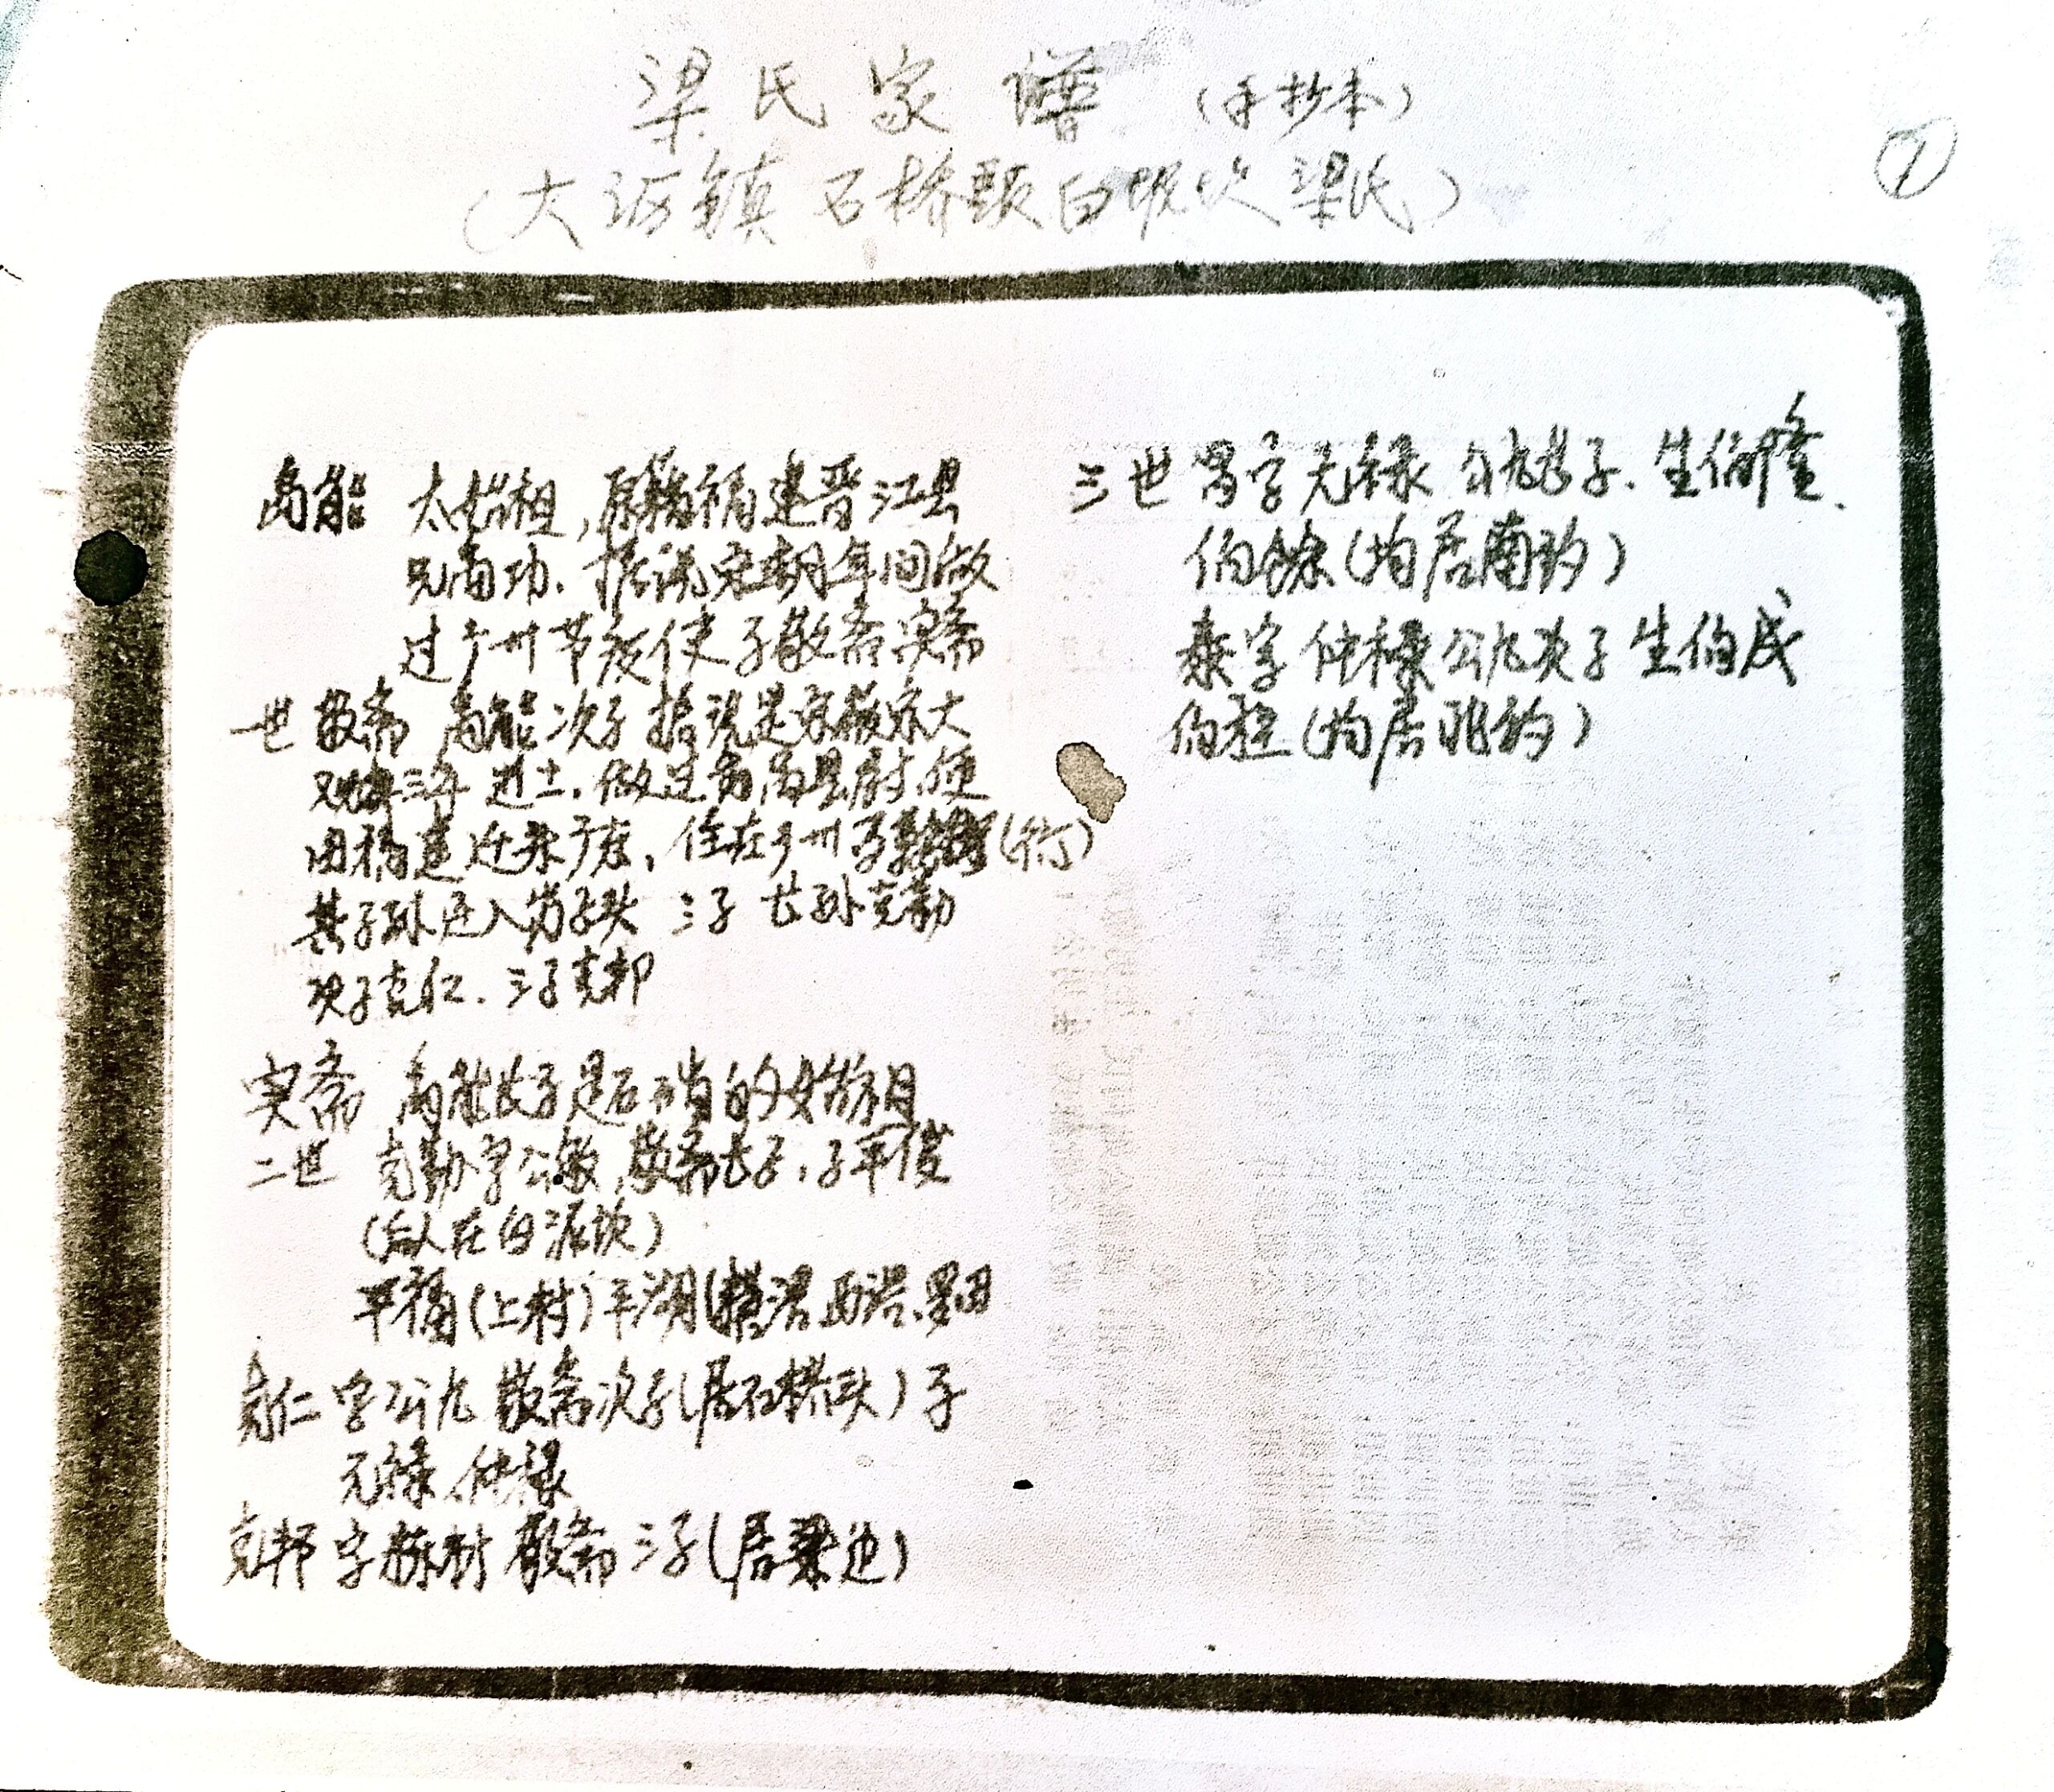 梁氏家谱(手抄本)
①
(大沥镇石桥头白坭坎梁氏)
嵩能 太始祖,原籍福建晋江县
兄嵩功.据说宋朝年间做
过广州节度使子敬斋实斋
一世 敬斋 嵩能次子据说是宋徽宗大
观三年进士.做过番禺县尉便
由福建迁来广东,住在广州(街)
其子孙迁入 三子 长孙克勤
次子克仁.三子克邦
实斋 嵩能长子是石肖的始祖
二世 克勤字公敏,敬斋长子,子平俊
(后人在白泥坎)
平福(上村)平湖(横滘西滘、
克仁 字公九 敬斋次子(居石桥头)子
元禄、仲禄
克邦 字 敬斋三子(居梁边)
三世 字元禄 公九长子.生伯隆、
伯馀(均居南约)
泰字仲禄公九次子生伯成
伯程(均居北约)